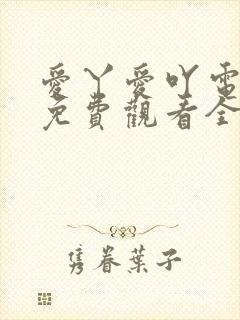 愛丫愛吖電
免費觀看全
隽眷葉子